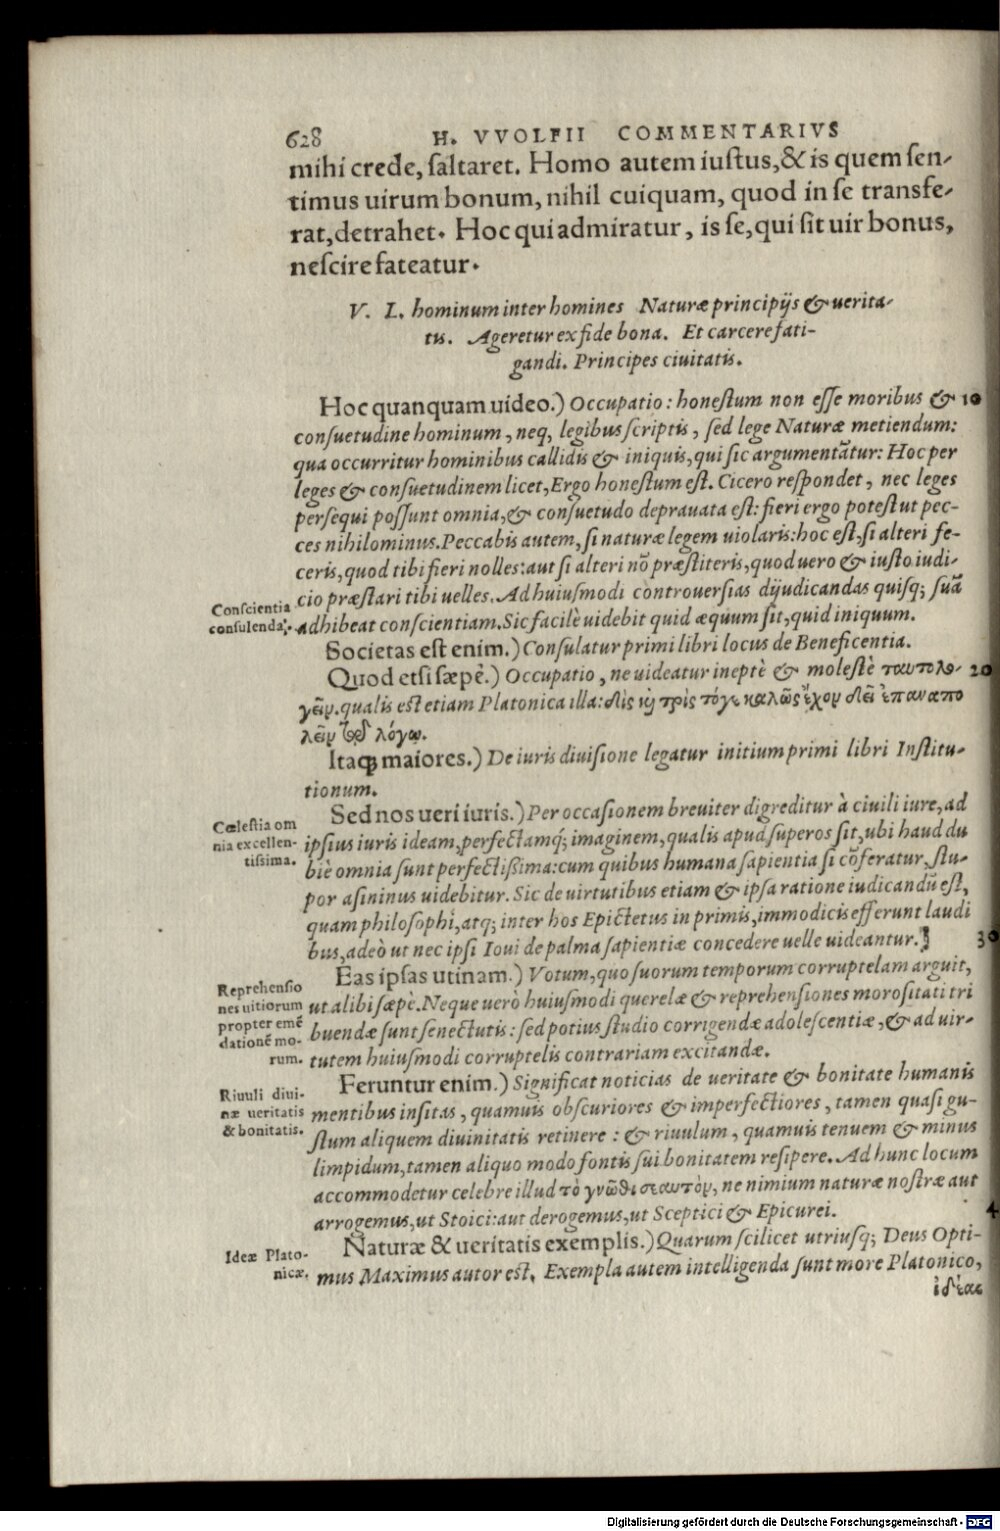 628 H. VVOLFII COMMENTARIVS
mihi crede, ſaltaret. Homo autem iuſtus, & is quem ſen-
timus uirum bonum, nihil cuiquam, quod in ſe transfe-
rat, detrahet. Hoc qui admiratur, is ſe, qui ſit uir bonus,
neſcire fateatur.
V. L. hominum inter homines Naturæ principijs & uerita-
tis. Ageretur ex fide bona. Et carcere fati-
gandi. Principes ciuitatis.
Hoc quanquam uideo.) Occupatio: honeſtum non eſſe moribus & 10
conſuetudine hominum, neq; legibus ſcriptis, ſed lege Naturæ metiendum:
qua occurritur hominibus callidis & iniquis, qui ſic argumentātur: Hoc per
leges & conſuetudinem licet, Ergo honeſtum eſt. Cicero reſpondet, nec leges
perſequi poſſunt omnia, & conſuetudo deprauata eſt: fieri ergo poteſt ut pec-
ces nihilominus. Peccabis autem, ſi naturæ legem uiolaris: hoc eſt, ſi alteri fe-
ceris, quod tibi fieri nolles: aut ſi alteri nō præſtiteris, quod uero & iuſto iudi-
cio præſtari tibi uelles. Ad huiuſmodi controuerſias dijudicandas quiſq; ſuā
Conſcientia
conſulenda.
adhibeat conſcientiam. Sic facilè uidebit quid æquum ſit, quid iniquum.
Societas eſt enim.) Conſulatur primi libri locus de Beneficentia.
Quod etſi ſæpè.) Occupatio, ne uideatur ineptè & moleſtè ταυτολο- 20
γεῖν. qualis eſt etiam Platonica illa: δὶς ϗ τρὶς τόγε καλῶς ἔχον δεῖ ἐπαναπο
λεῖν τῷ λόγῳ.
Itaq; maiores.) De iuris diuiſione legatur initium primi libri Inſtitu-
tionum.
Sed nos ueri iuris.) Per occaſionem breuiter digreditur à ciuili iure, ad
Cœleſtia om
nia excellen-
tiſsima.
ipſius iuris ideam, perfectamq́; imaginem, qualis apud ſuperos ſit, ubi haud du
biè omnia ſunt perfectiſsima: cum quibus humana ſapientia ſi cōferatur, ſtu-
por aſininus uidebitur. Sic de uirtutibus etiam & ipſa ratione iudicandū eſt,
quam philoſophi, atq; inter hos Epictetus in primis, immodicis efferunt laudi
bus, adeò ut nec ipſi Ioui de palma ſapientiæ concedere uelle uideantur.] 30
Eas ipſas utinam.) Votum, quo ſuorum temporum corruptelam arguit,
Reprehenſio
nes uitiorum
propter emē
dationē mo-
rum.
ut alibi ſæpè. Neque uerò huiuſmodi querelæ & reprehenſiones moroſitati tri
buendæ ſunt ſenectutis: ſed potius ſtudio corrigendæ adoleſcentiæ, & ad uir-
tutem huiuſmodi corruptelis contrariam excitandæ.
Feruntur enim.) Significat noticias de ueritate & bonitate humanis
Riuuli diui-
næ ueritatis
& bonitatis.
mentibus inſitas, quamuis obſcuriores & imperfectiores, tamen quaſi gu-
ſtum aliquem diuinitatis retinere: & riuulum, quamuis tenuem & minus
limpidum, tamen aliquo modo fontis ſui bonitatem reſipere. Ad hunc locum
accommodetur celebre illud τὸ γνῶθι σεαυτὸν, ne nimium naturæ noſtræ aut
arrogemus, ut Stoici: aut derogemus, ut Sceptici & Epicurei. 4
Naturæ & ueritatis exemplis.) Quarum ſcilicet utriuſq; Deus Opti-
Ideæ Plato-
nicæ.
mus Maximus autor eſt. Exempla autem intelligenda ſunt more Platonico,
ἰδέας
Digitalisierung gefördert durch die Deutsche Forschungsgemeinschaft - DFG